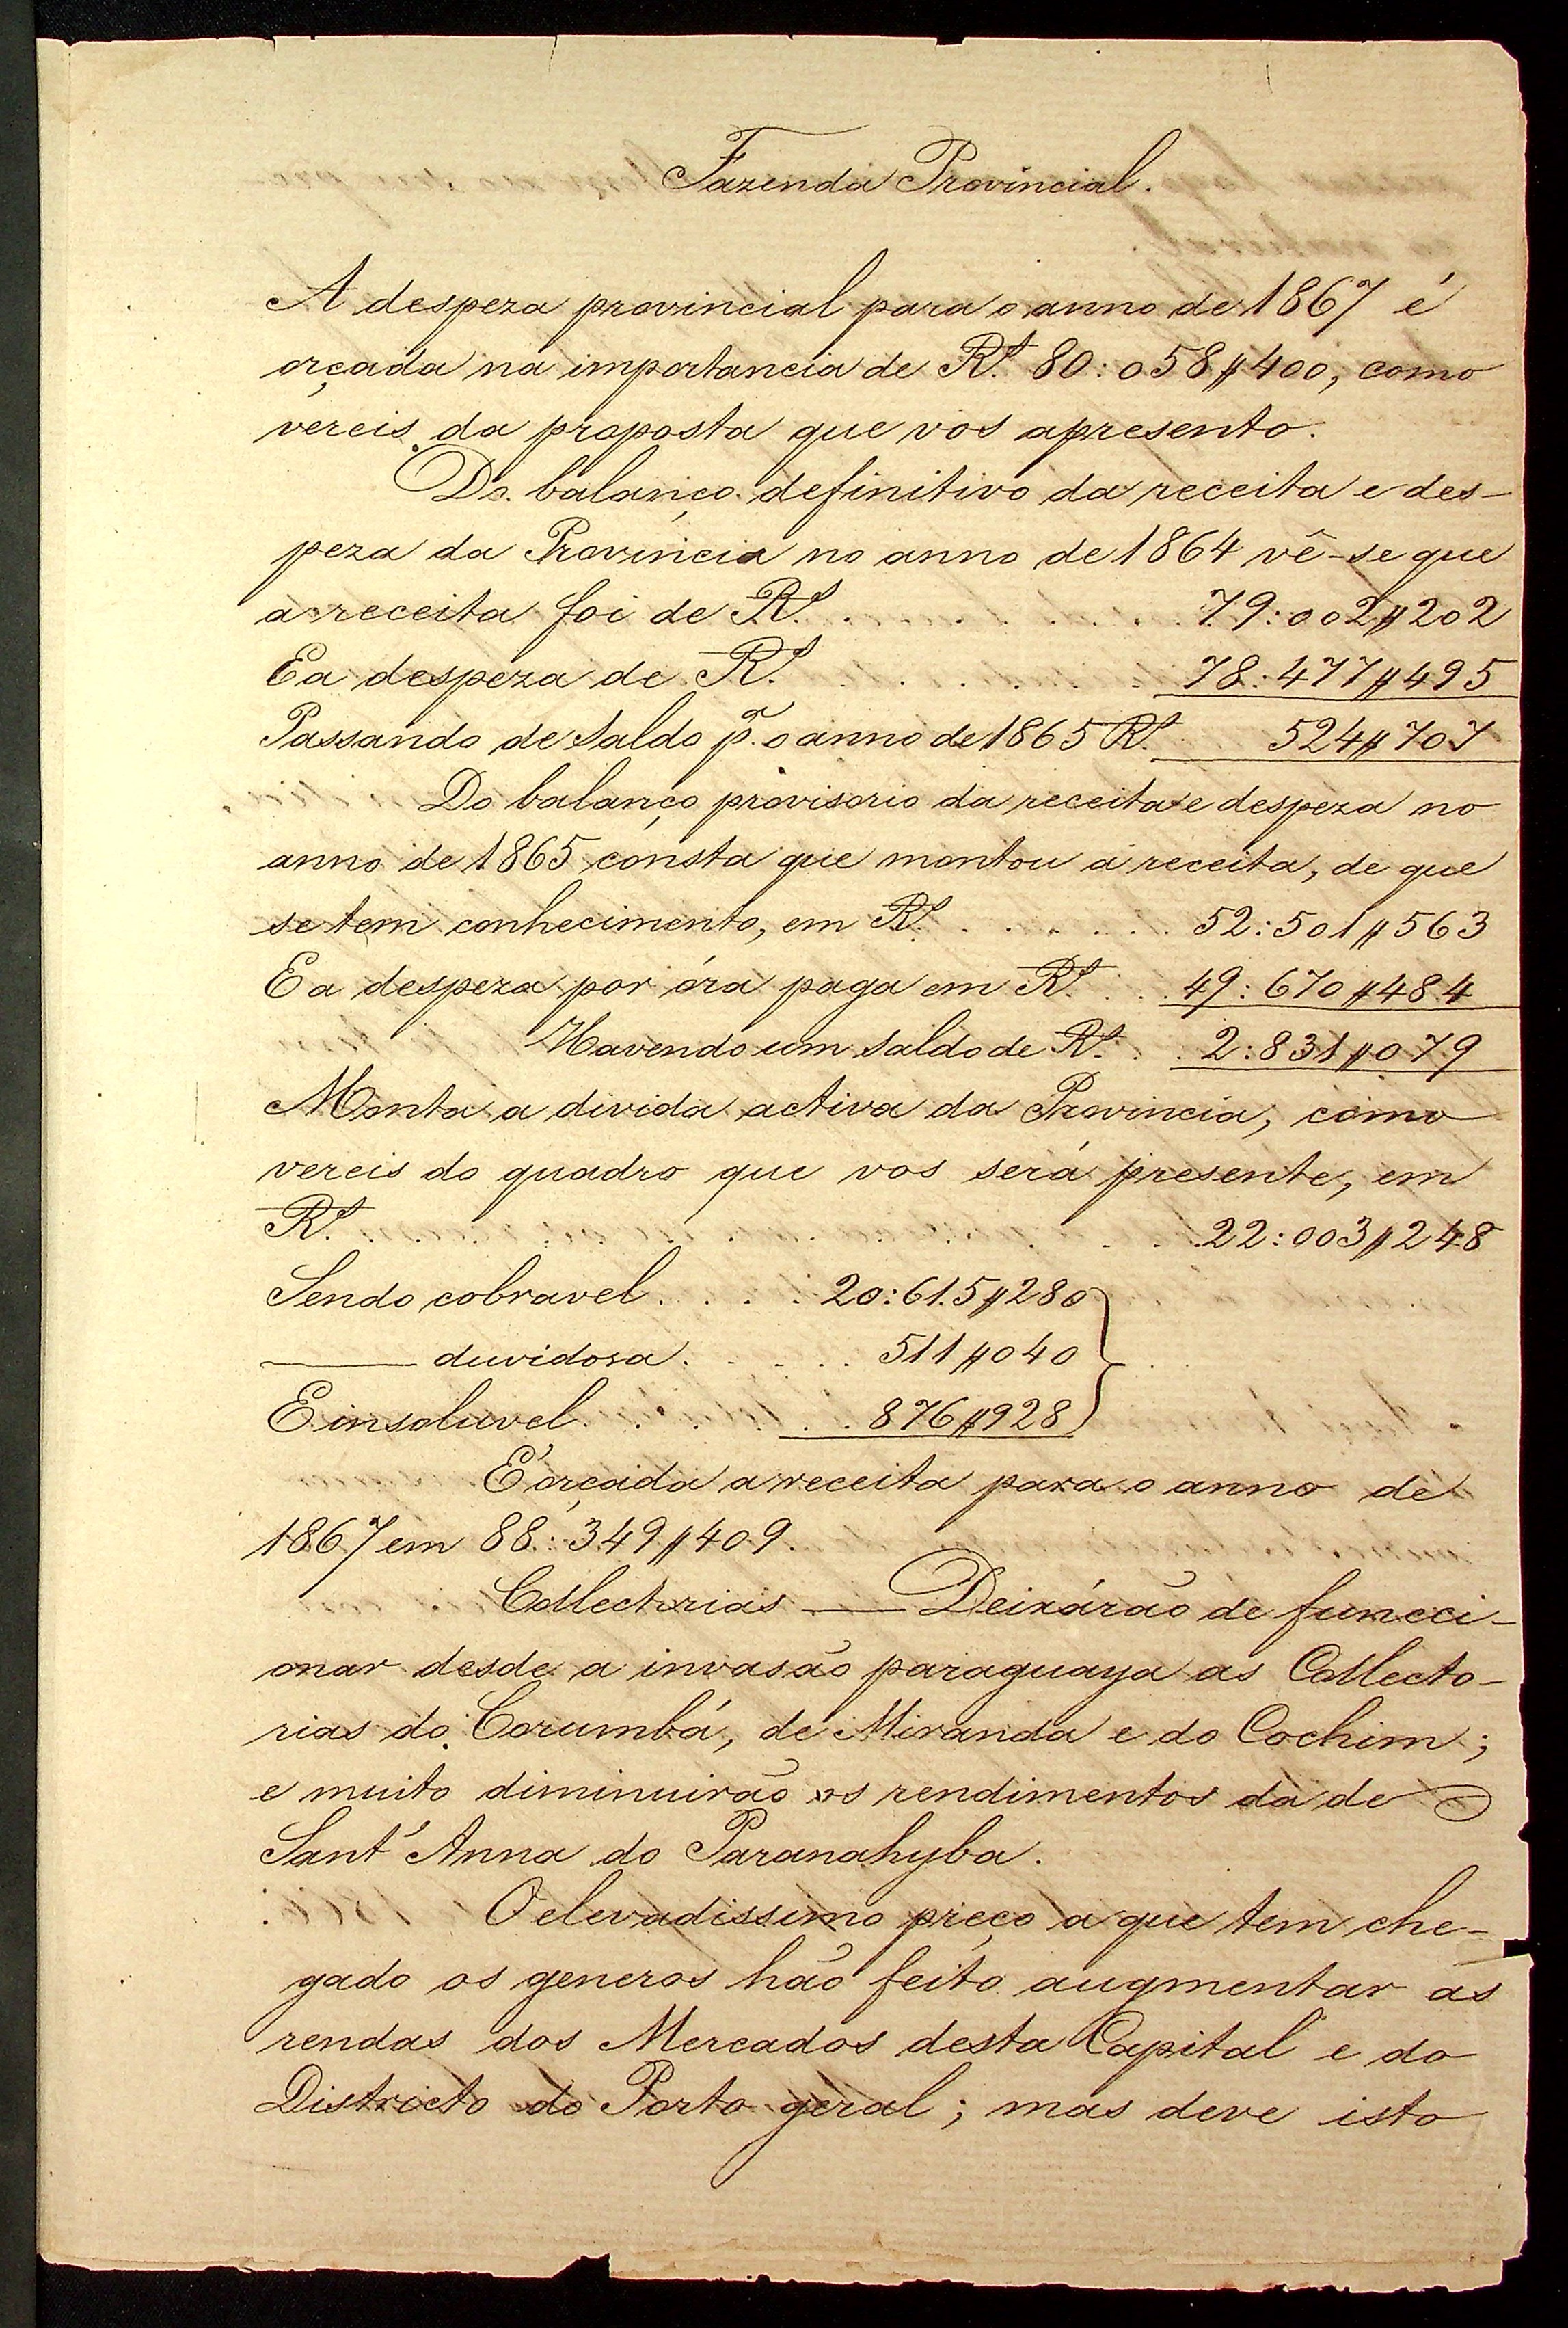 Fazenda Provincial.
A despeza provincial para o anno de 1867 é
orçada na importancia de Rs. 80:058$400, como
vereis da proposta que vos apresento.
Do balanço definitivo da receita e des-
peza da Provincia no anno de 1864 vê-se que
a receita foi de Rs. . . . . . . . 79:002$202
E a despeza de Rs. . . . . . . . 78:477$495
Passando de saldo pa. o anno de 1865 Rs. 524$707
Do balanço provisorio da receita e despeza no
anno de 1865 consta que montou a receita, de que
se tem conhecimento, em Rs. . . . . . . 52:501$563
E a despeza por óra paga em Rs. . . . 49:670$484
Havendo um saldo de Rs. . . 2:831$079
Monta a divida activa da Provincia, como
vereis do quadro que vos será presente, em
Rs. . . . . . . . . . . 22:003$248
Sendo cobravel . . . . 20:615$280
—— duvidosa . . . . . 511$040
E insoluvel . . . . . 876$928
É orçada a receita para o anno de
1867 em 88:349$409.
Collectorias — Deixárão de funcci-
onar desde a invasão paraguaya as Collecto-
rias do Corumbá, de Miranda e do Cochim;
e muito diminuirão os rendimentos da de
Sant'Anna do Paranahyba.
O elevadissimo preço a que tem che-
gado os generos hão feito augmentar as
rendas dos Mercados desta Capital e do
Districto do Porto geral; mas deve isto